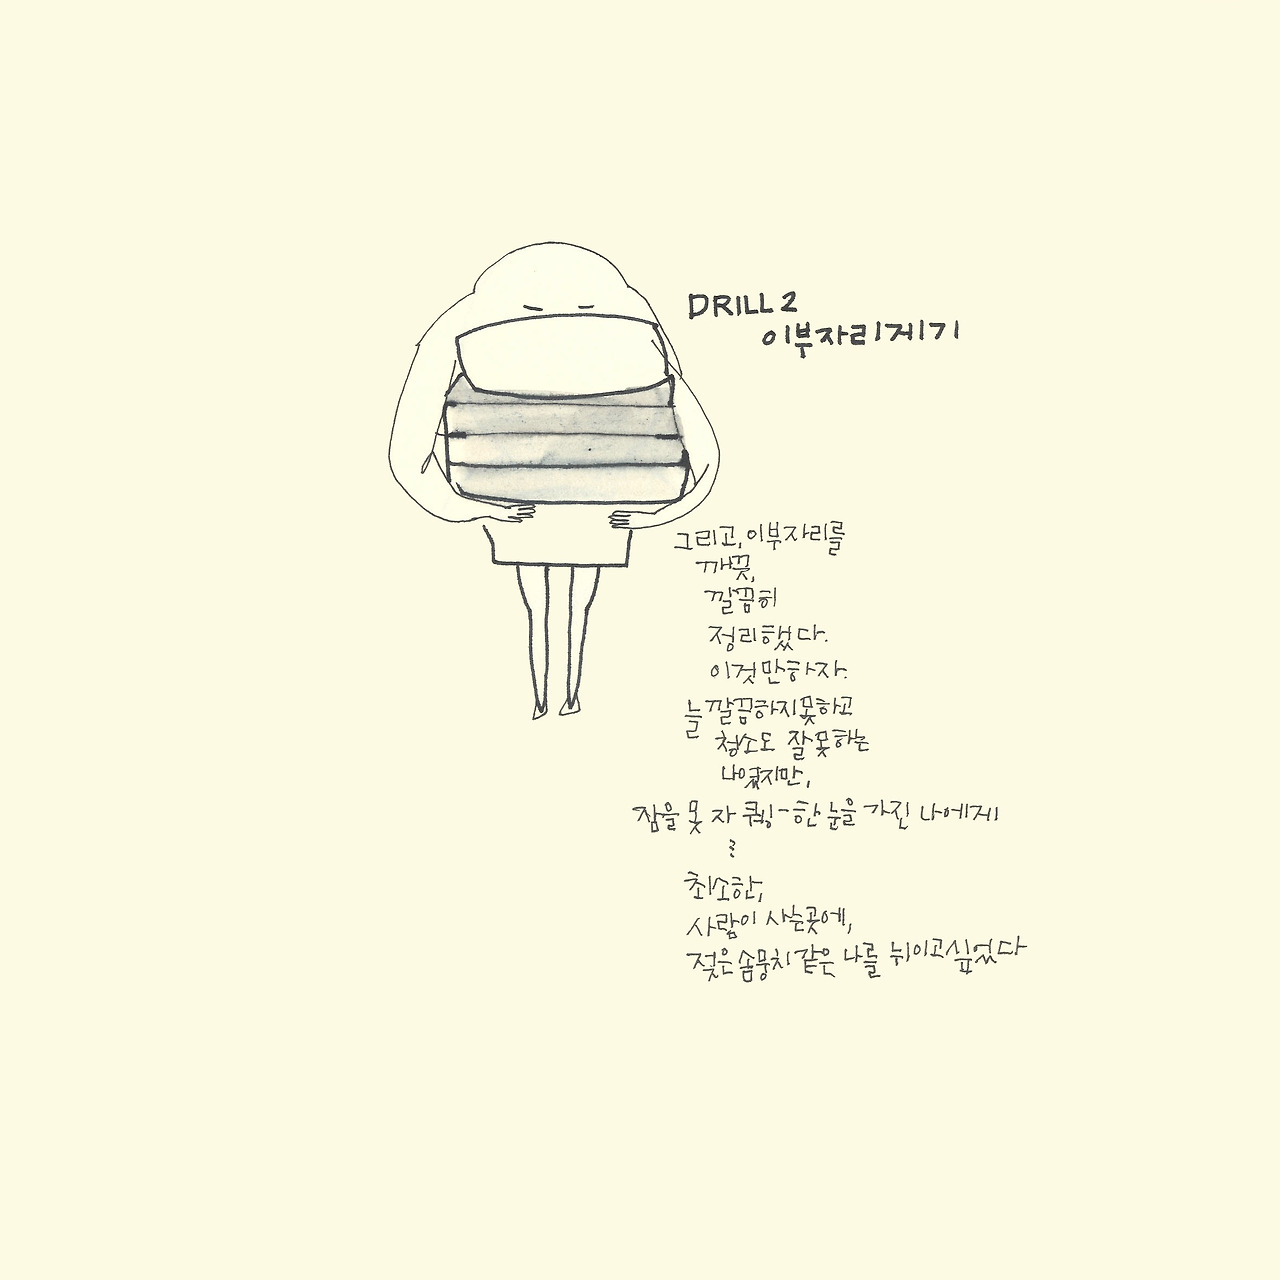 DRILL 2
이부자리개기
그리고, 이부자리를
깨끗,
깔끔히
정리했다.
이것만하자.
늘 깔끔하지못하고
청소도 잘못하는
나였지만,
잠을 못 자 퀭-한 눈을 가진 나에게
최소한,
사람이 사는곳에,
젖은솜뭉치같은 나를 뉘이고싶었다